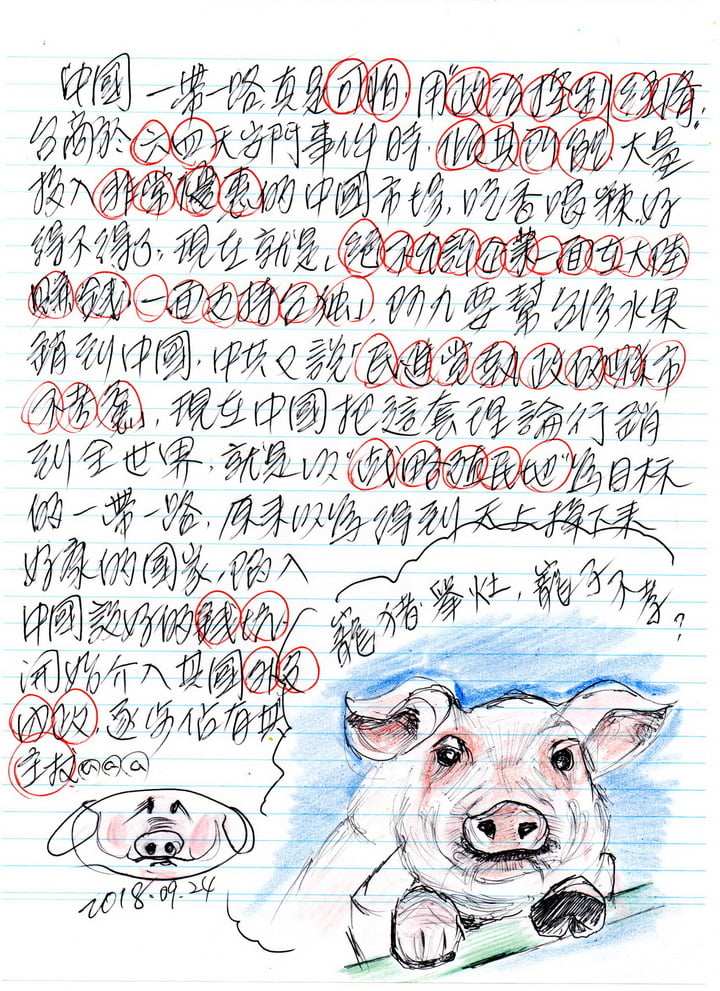 中國一帶一路真是可怕,用"政治控制經濟"
台商於六四天安門事件時,大量
投入非常優惠的中國市場,吃香喝辣,好
得不得了,現在就是「絕不允許企業一面在大陸
賺錢,一面支持台独」,要幫台灣水果
銷到中國,中共又說「民進党執政的縣市
不考慮」,現在中國把這套理論行銷
到全世界,就是以"戰略殖民地"為目標
的一帶一路,原來以為得到天上掉下來
好康的國家,陷入
中國設好的錢坑,
開始介入其國
內政,逐步佔有其
主权@@@
寵豬舉灶,寵子不孝?
2018.09.24